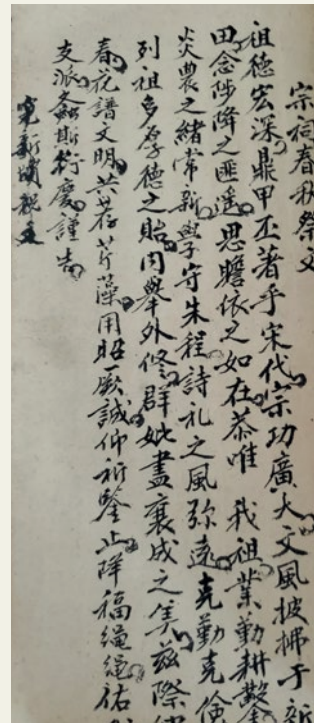 宗祠春秋祭文
祖德宏深鼎甲丕著乎宋代宗功廣大文風披拂于新
田念陟降之匪遥思瞻依之如在恭唯 我祖業勤耕
炎農之緒常新學守朱程詩礼之風弥遠克勤克儉
列祖多厚德之貽内舉外修群妣盡襄成之美兹際
春花譜文明共荐芹藻用昭厥誠仰祈鑒止降福繩繩佑
支派螽斯衍慶謹告
祝文